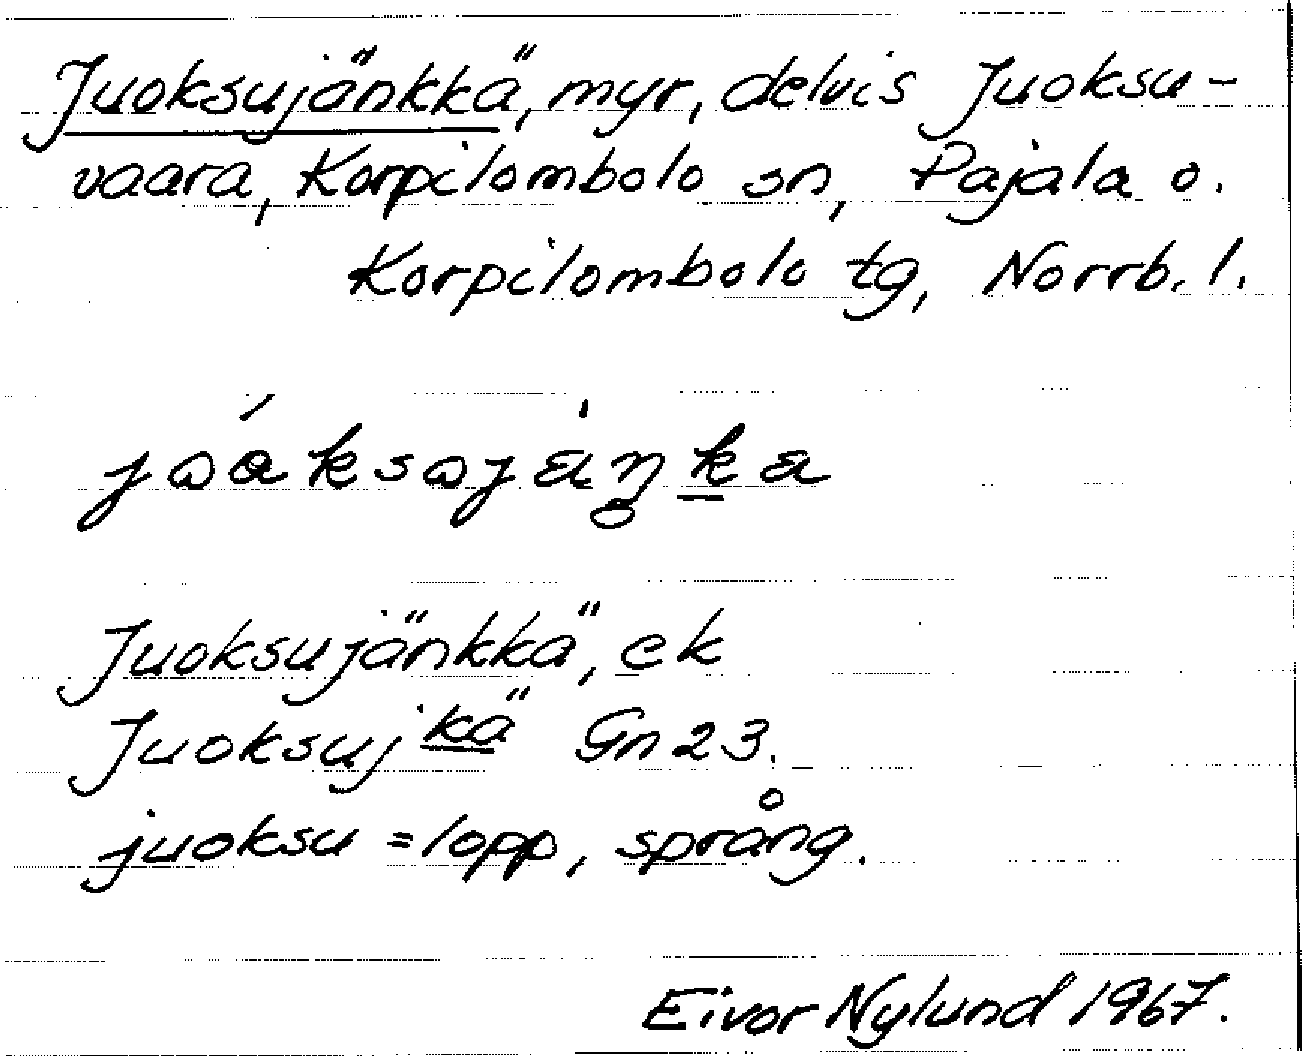 Juoksujänkkä, myr, delvis Juoksu-
vaara, Korpilombolo sn, Pajala o.
Korpilombolo tg, Norrb. l.
Juoksujänkkä, ek
Juoksujkä Gn 23.
juoksu = lopp, språng.
Eivor Nylund 1967.